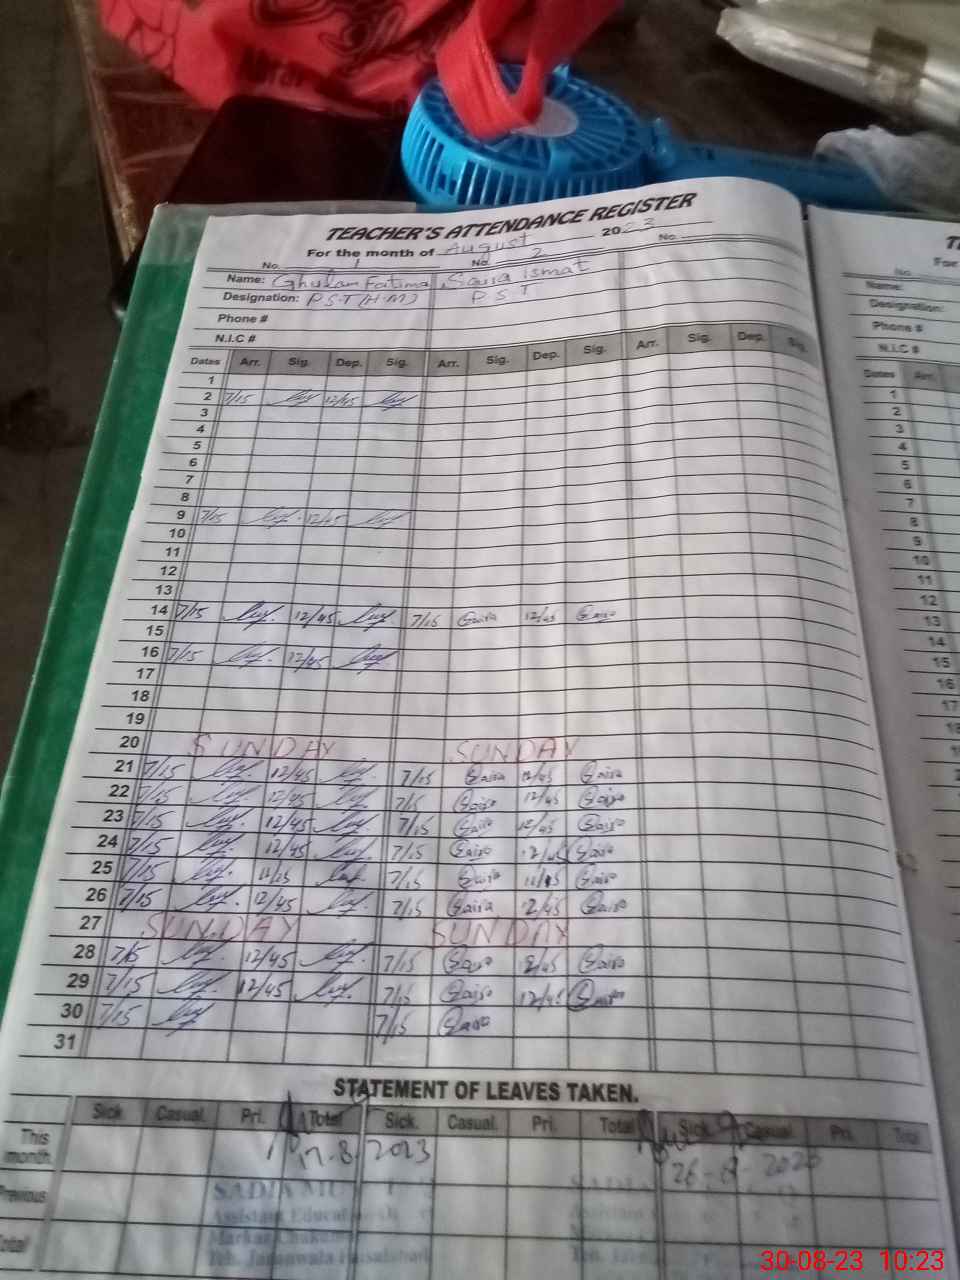 TEACHER'S ATTENDANCE REGISTER
For the month of August 2023
No. 1 No. 2 No.
Name: Ghulam Fatima Saira Ismat
Designation: P.S.T (H.M) P S T
Phone #
N.I.C #
Dates Arr. Sig. Dep. Sig. Arr. Sig. Dep. Sig. Arr. Sig. Dep. Sig.
1
2 7/15 12/45
3
4
5
6
7
8
9 7/15 12/45
10
11
12
13
14 7/15 12/45 7/15 Saira 12/45 Saira
15
16 7/15 12/45
17
18
19
20 SUNDAY SUNDAY
21 7/15 12/45 7/15 Saira 12/45 Saira
22 7/15 12/45 7/15 Saira 12/45 Saira
23 7/15 12/45 7/15 Saira 12/45 Saira
24 7/15 12/45 7/15 Saira 12/45 Saira
25 7/15 11/15 7/15 Saira 11/15 Saira
26 7/15 12/45 7/15 Saira 12/45 Saira
27 SUNDAY SUNDAY
28 7/15 12/45 7/15 Saira 12/45 Saira
29 7/15 12/45 7/15 Saira 12/45 Saira
30 7/15 7/15 Saira
31
STATEMENT OF LEAVES TAKEN.
Sick Casual. Pri. Total Sick. Casual. Pri. Total Sick. Casual Pri. Total
This month.
17.8.2023
Previous
SADIA
Assistant
Markaz
Teh. Jaranwala Faisalabad
Total
T
For
No.
Name:
Designation:
Phone #
N.I.C #
Dates Arr.
1
2
3
4
5
6
7
8
9
10
11
12
13
14
15
16
17
18
30-08-23 10:23